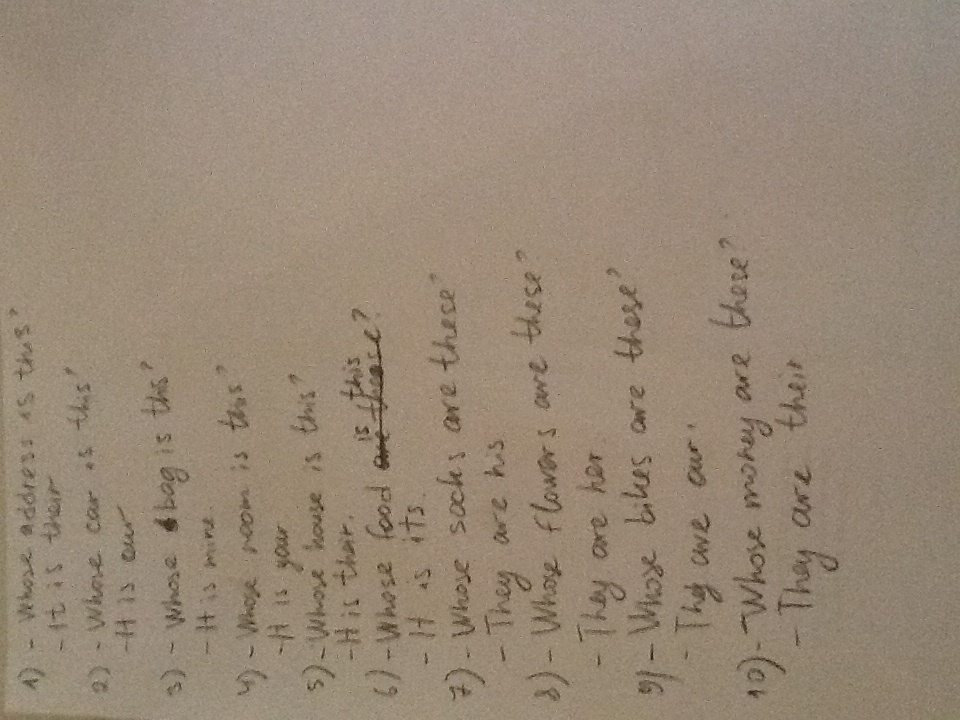 1) - Whose address is this?
- It is their
2) - Whose car is this?
- It is our
3) - Whose bag is this?
- It is mine.
4) - Whose room is this?
- It is your
5) - Whose house is this?
- It is their.
6) - Whose food is this?
- It is its.
7) - Whose socks are these?
- They are his
8) - Whose flowers are these?
- They are her
9) - Whose bikes are these?
- They are our.
10) - Whose money are these?
- They are their